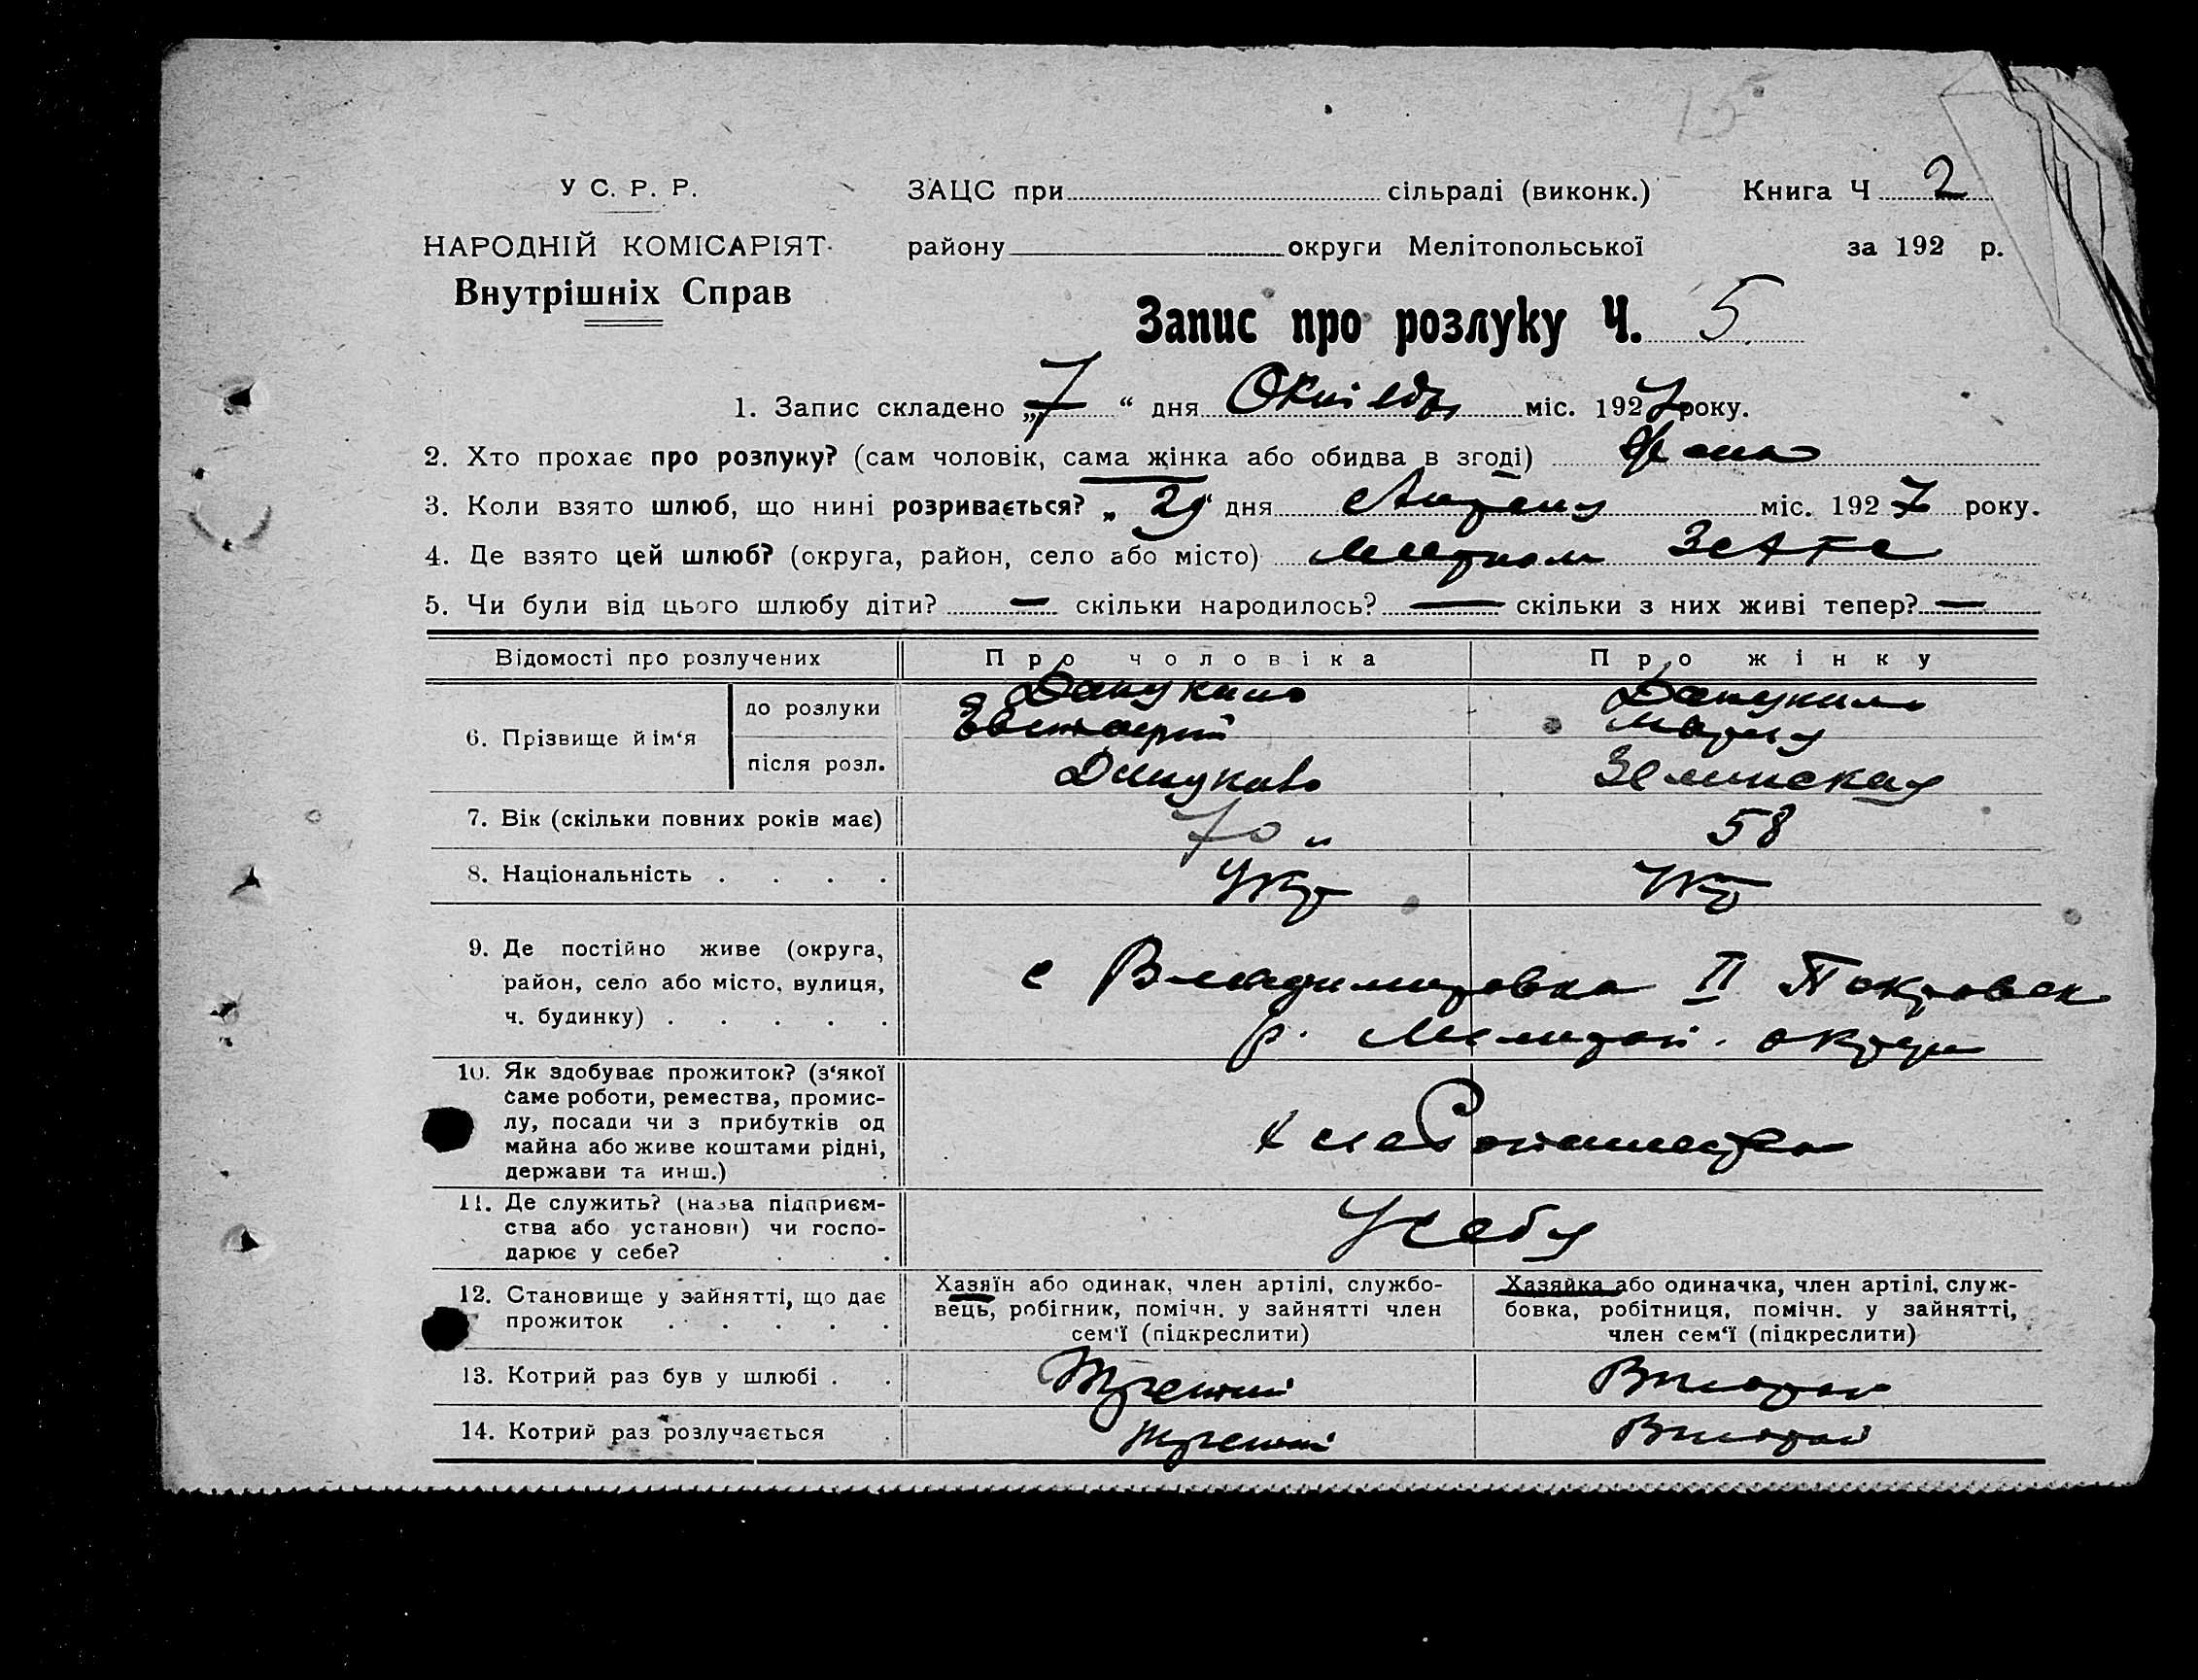 15
У С. Р. Р.
ЗАЦС при сільраді (виконк.) Книга Ч 2
НАРОДНІЙ КОМІСАРІЯТ
району округи Мелітопольської за 192 р.
Внутрішніх Справ
Запис про розлуку Ч. 5
1. Запис складено „7“ дня Октября міс. 1927 року.
2. Хто прохає про розлуку? (сам чоловік, сама жінка або обидва в згоді) жена
3. Коли взято шлюб, що нині розривається? „29“ дня Апреля міс. 1927 року.
4. Де взято цей шлюб? (округа, район, село або місто) ЗАГС
5. Чи були від цього шлюбу діти? — скільки народилось? — скільки з них живі тепер? —
Відомості про розлучених Про чоловіка Про жінку
6. Прізвище й ім‘я
до розлуки
Мария
після розл. Зелинская
7. Вік (скільки повних років має) 70 58
8. Національність . . . . Укр Укр
9. Де постійно живе (округа, район, село або місто, вулиця, ч. будинку) . . . . .
с Владимировка II Покровск
р. Мелитоп. округи
10. Як здобуває прожиток? (з‘якої
саме роботи, ремества, промис-
лу, посади чи з прибутків од
майна або живе коштами рідні,
держави та инш.)
11. Де служить? (назва підприєм-
ства або установи) чи госпо-
дарює у себе? . . .
У себя
12. Становище у зайнятті, що дає
прожиток . . . . .
Хазяїн або одинак, член артілі, службо-
вець, робігник, помічн. у зайнятті член
сем‘ї (підкреслити)
Хазяйка або одиначка, член артілі, служ-
бовка, робітниця, помічн. у зайнятті,
член сем‘ї (підкреслити)
13. Котрий раз був у шлюбі . . Третий Второй
14. Котрий раз розлучається . третий Второй